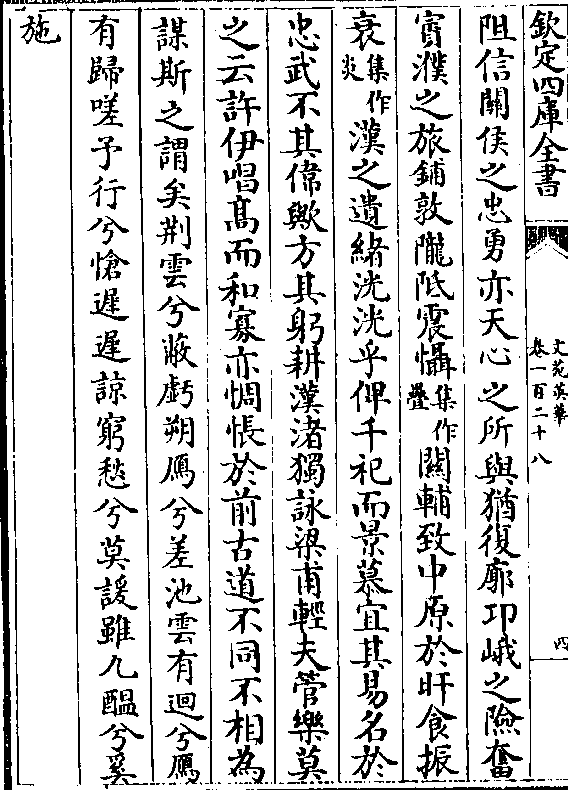 欽定四庫全書
文苑英華
卷一百二十八
四
阻信關侯之忠勇亦天心之所與猶復廓邛峨之險奮
賨濮之旅鋪敦隴阺震懾集作疊關輔致中原於旰食振
衰集作炎漢之遺緒洸洸乎俾千祀而景慕宜其易名於
忠武不其偉歟方其躬耕漢渚獨詠梁甫輕夫管樂莫
之云許伊唱髙而和寡亦惆悵於前古道不同不相為
謀斯之謂矣荆雲兮蔽虧朔鴈兮差池雲有迴兮鴈
有歸嗟予行兮愴遲遲諒窮愁兮莫諼雖九醖兮奚
施